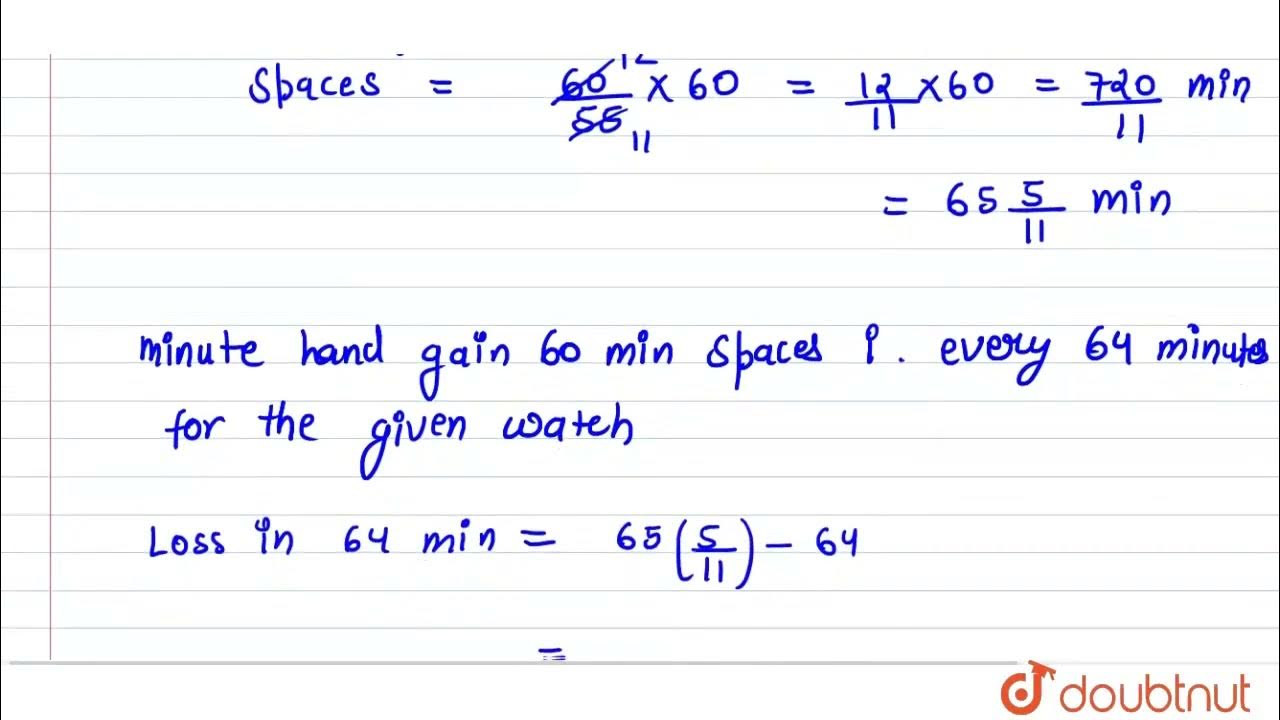 Spaces = 60/55 12 11 × 60 = 12/11 × 60 = 720/11 min
= 65 5/11 min
minute hand gain 60 min spaces i. every 64 minutes
for the given watch
Loss in 64 min = 65(5/11) - 64
=
doubtnut